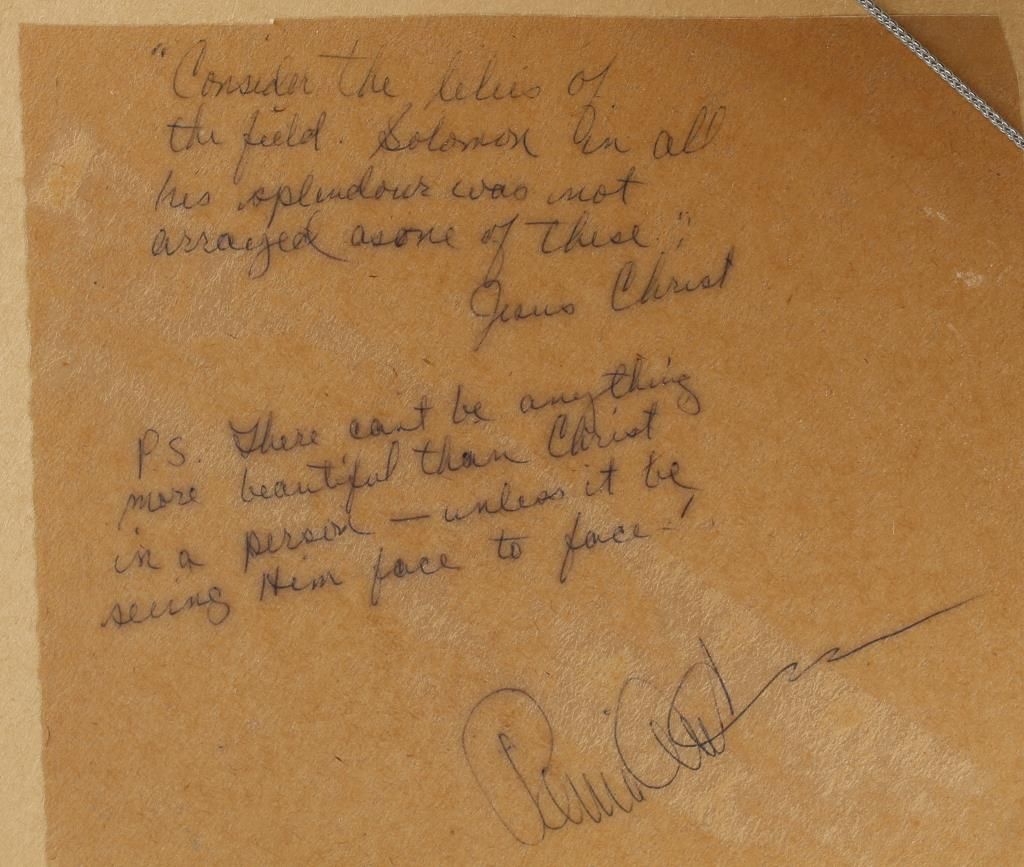 "Consider the lilies of
the field. Solomon in all
his splendour was not
arrayed as one of these."
Jesus Christ
PS. There cant be anything
more beautiful than Christ
in a person — unless it be
seeing Him face to face—!